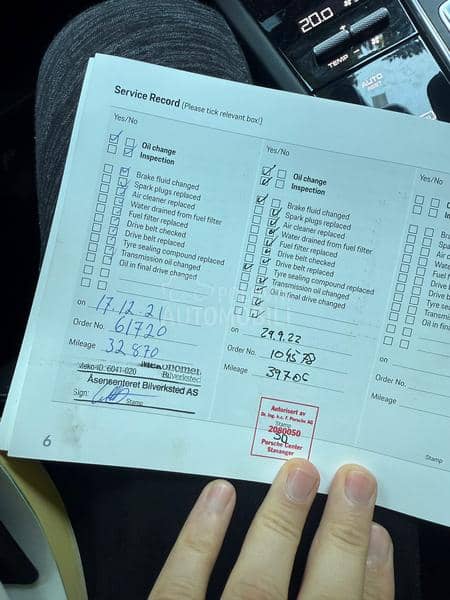 20.0
TEMP
AUTO
Service Record (Please tick relevant box!)
Yes/No
Oil change
Inspection
Brake fluid changed
Spark plugs replaced
Air cleaner replaced
Water drained from fuel filter
Fuel filter replaced
Drive belt checked
Drive belt replaced
Tyre sealing compound replaced
Transmission oil changed
Oil in final drive changed
on 17.12.21
Order No. 61720
Mileage 32870
6041-020
Bilverksted
Åsensenteret Bilverksted AS
Sign:
Stamp
6
Yes/No
Oil change
Inspection
Brake fluid changed
Spark plugs replaced
Air cleaner replaced
Water drained from fuel filter
Fuel filter replaced
Drive belt checked
Drive belt replaced
Tyre sealing compound replaced
Transmission oil changed
Oil in final drive changed
on 29.9.22
Order No.
Mileage
Autorisert av
Dr. Ing. h.c. F. Porsche AG
Stamp
2080050
Porsche Center
Stavanger
Yes/No
on
Order No.
Mileage
Stamp
AUTOMOBILE